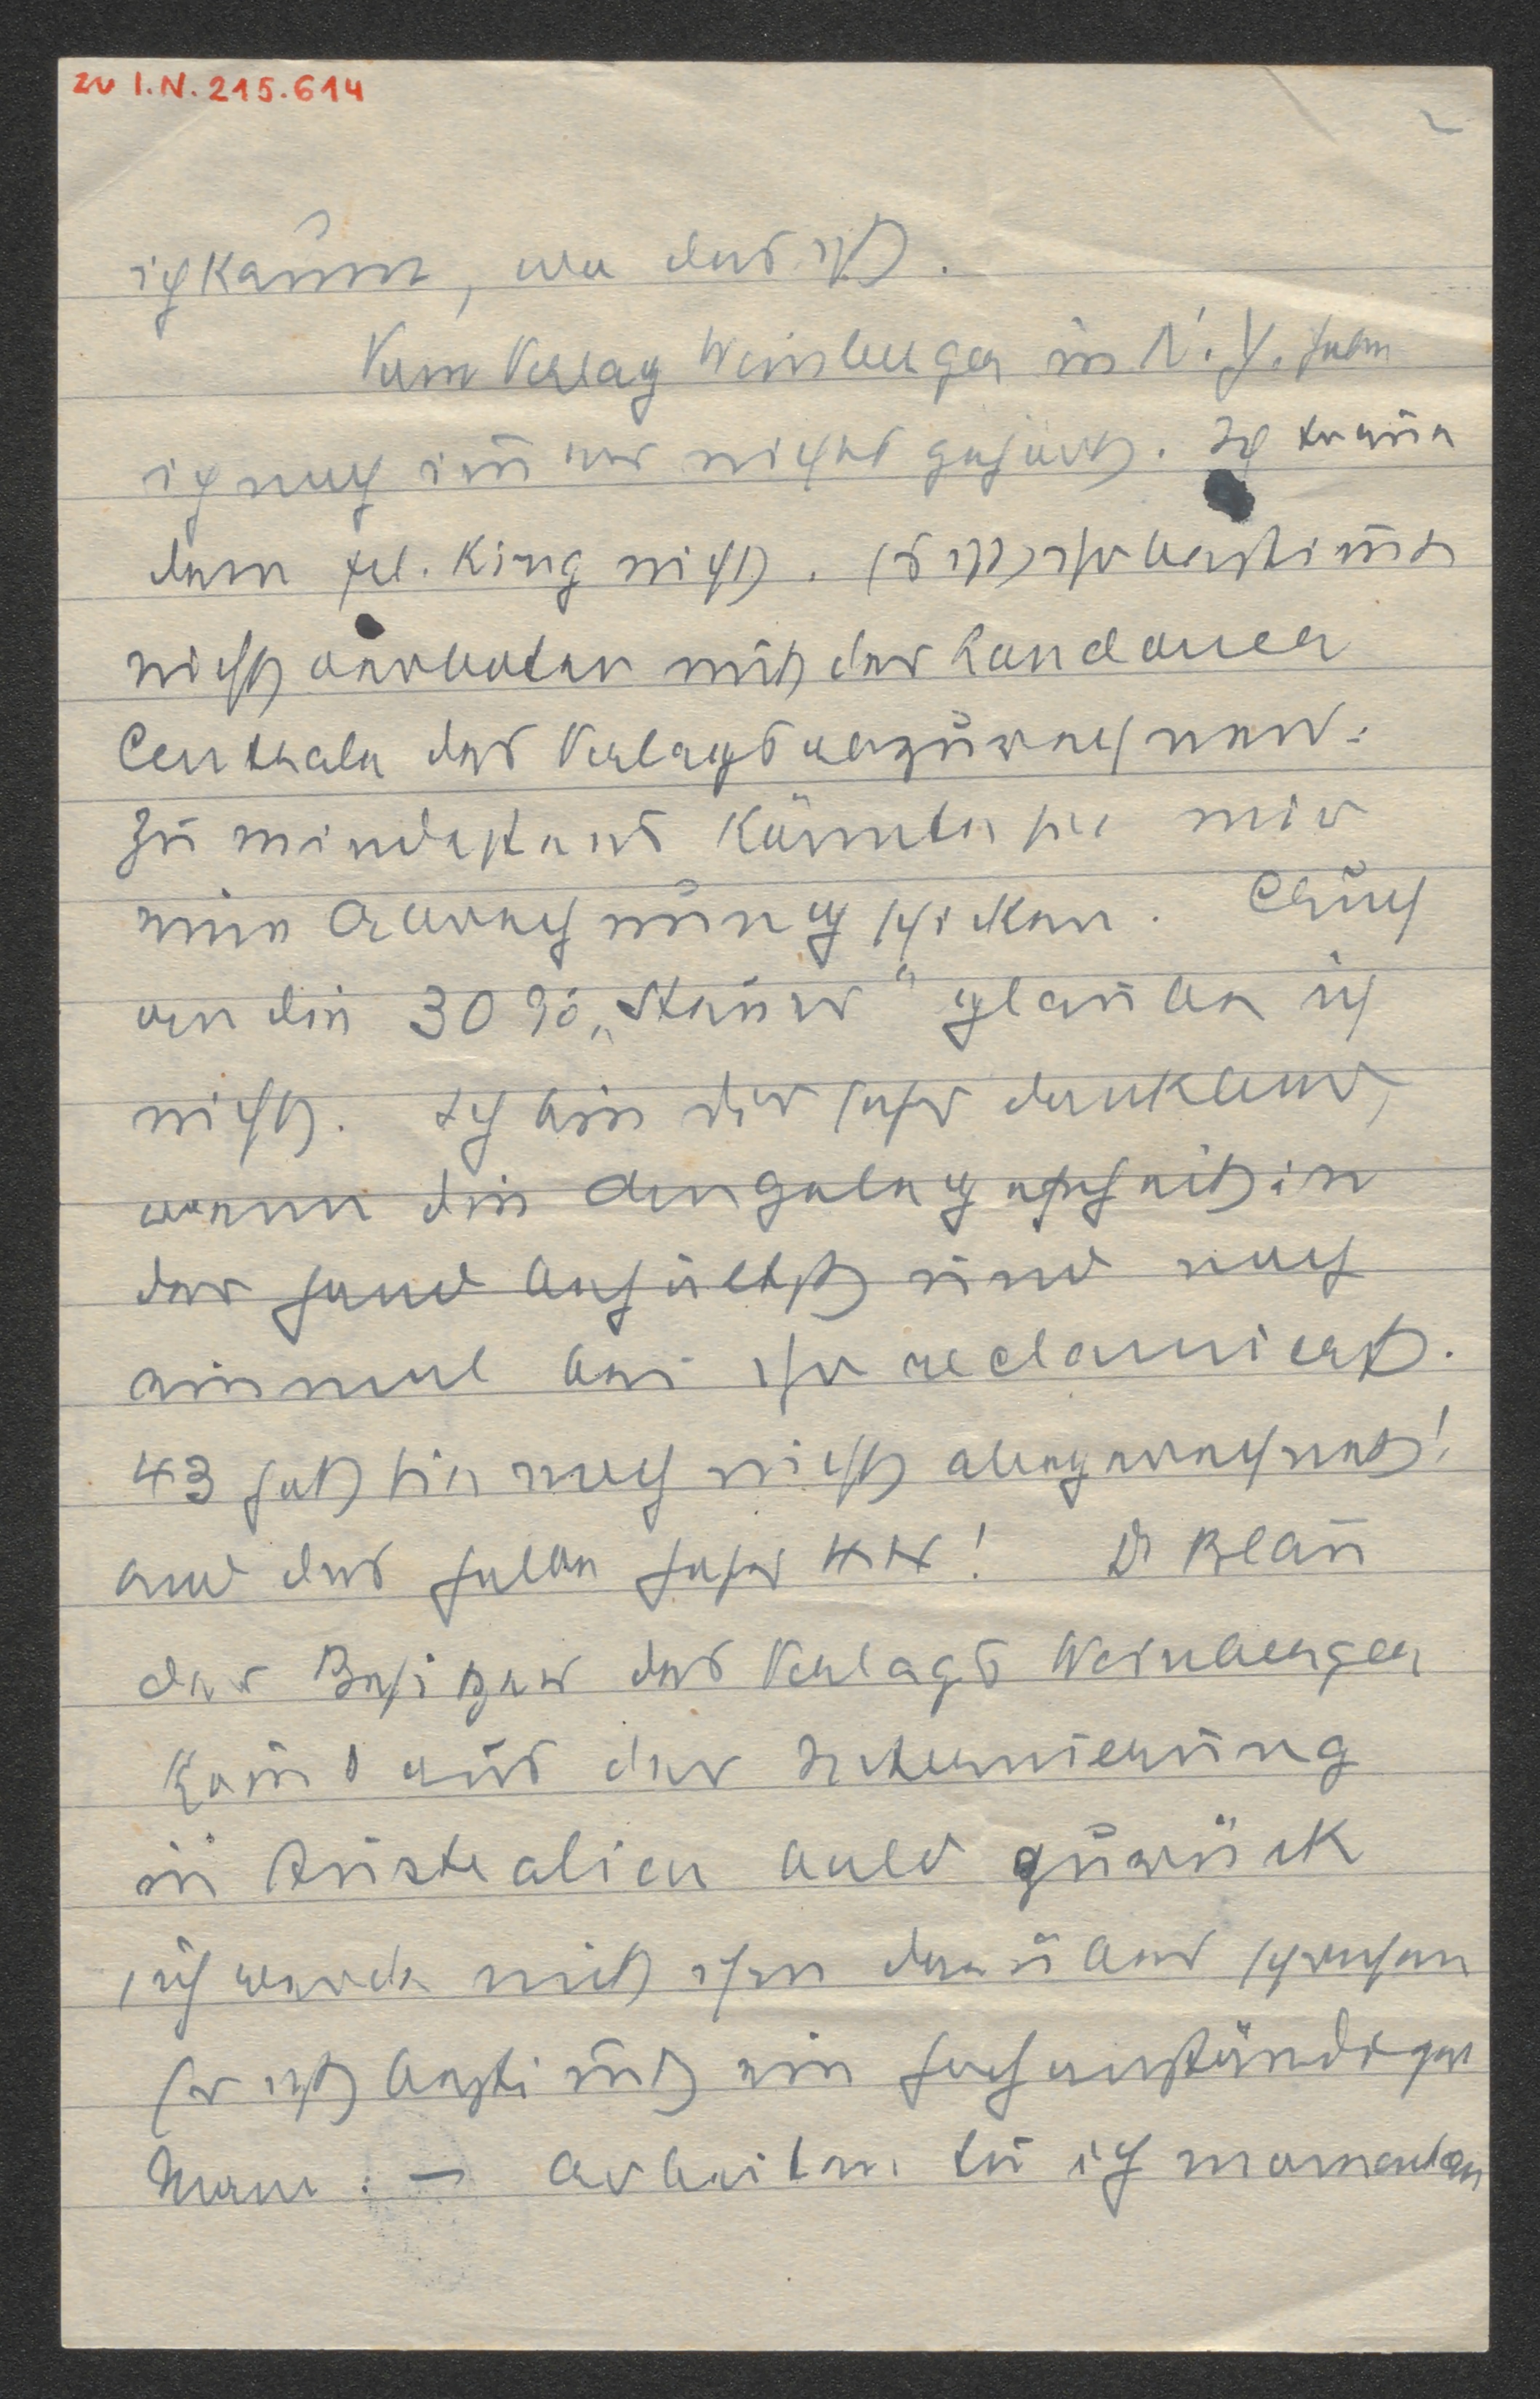 zu I.N. 215.614
2
ich kaum̅, wo das ist.
Vom Verlag Weinberger in N.Y. habe
ich noch im̅er nichts gehört. Ich traue
dem frl. King nicht. Es ist ihr bestim̅t
nicht verboten mit der Londoner
Centrale des Verlags abzurechnen.
Zu mindestens könnte sie mir
eine Abrechnung schicken. Auch
an die 30% „Steuer“ glaube ich
nicht. Ich bin dir sehr dankbar,
wenn du die Angelegenheit in
der Hand behältst und noch
einmal bei ihr reclamierst.
43 hat sie noch nicht abgerechnet!
und das halbe Jahr 44! Dr Blau
der Besitzer des Verlags Weinberger
kom̅t aus der Internierung
in Australien bald zurück
ich werde mit ihm darüber sprechen
Er ist bestim̅t ein hochanständiger
Mann. — Arbeiten tu ich momentan